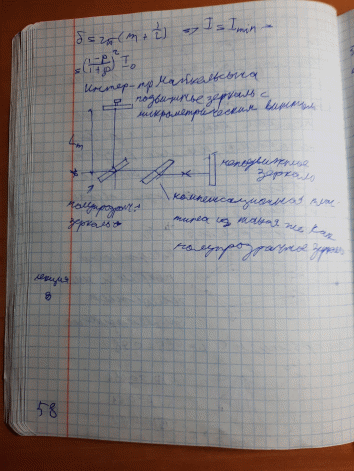 δ = 2π(m + 1/2) ⇒ I = Imin =
= ((1-ρ)/(1+ρ))² I₀
Интер-р Майкельсона
подвижное зеркало с
микрометрическим винтом
Lm
неподвижное
зеркало
полупрозрач.
зеркало
компенсационная плас-
тина из такая же как
полупрозрачное зеркало
лекция
8
58